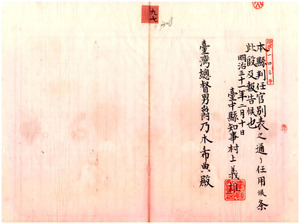 本縣判任官別表之通リ任用候条
此段及報告候也
明治三十一年二月十日
臺中縣知事村上義雄
臺灣總督男爵乃木希典殿